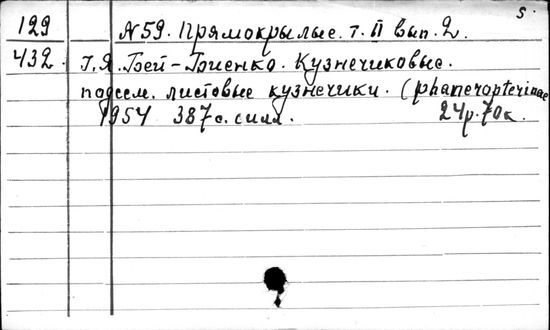 5.
129 N 59. Прямокрылые. т. II вып. 2.
432. Г.Я. Бей-Биенко. Кузнечиковые.
подсем. листовые кузнечики. (Phaneropterinae
1954 387 с. илл. 24р. 70к.